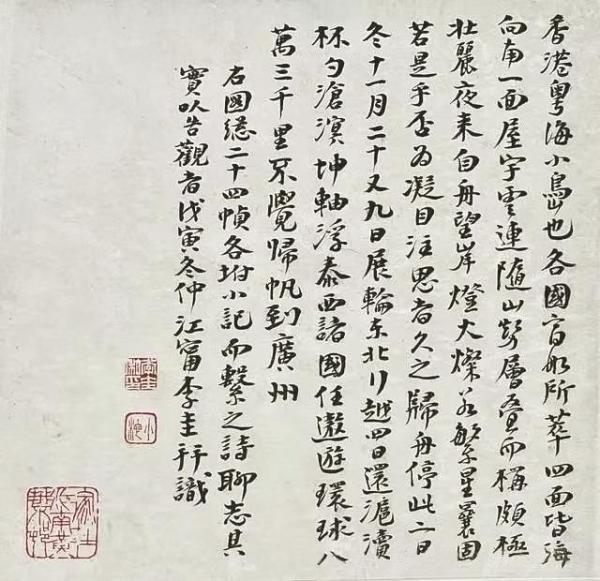 香港粵海小島也各國商舶所萃四面皆海
向南一面屋宇雲連隨山勢層疊而構頗極
壯麗夜來自舟望岸燈火燦若繁星曩固
若是乎否為凝目注思者久之歸舟停此二日
冬十一月二十又九日展輪東北行越四日還滬瀆
杯勺滄溟坤軸浮泰西諸國任遨遊環球八
萬三千里不覺歸帆到廣州
右圖總二十四幀各坿小記而繫之詩聊志其
實以告觀者戊寅冬仲江甯李圭拜識
小池
家住江南黃葉邨